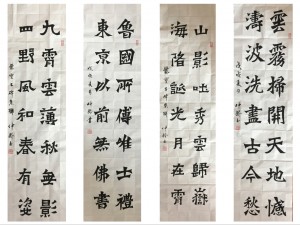 雲霧掃開天地憾
濤波洗盡古今愁
山影吐秀雲歸嶽
海光月在霄
魯國所傳唯士禮
東京以前無佛書
九霄雲薄秋無影
四野風和春有姿